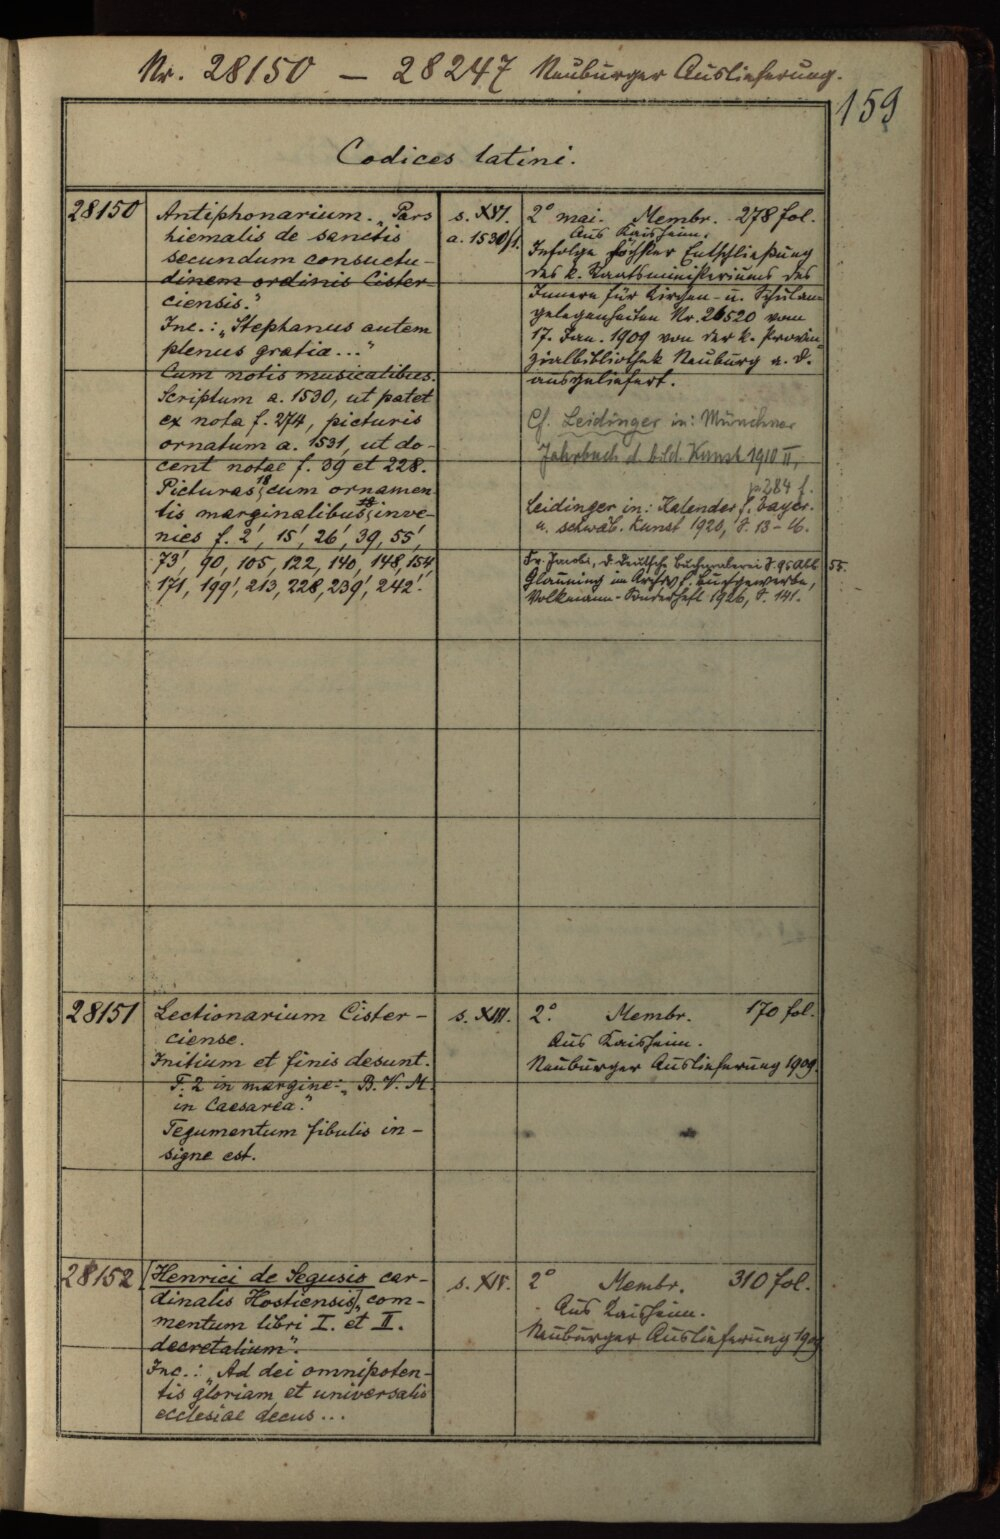 Nr. 28150 – 28247 Neuburger Auslieferung.
159
Codices latini.
28150
Antiphonarium. „Pars
hiemalis de sanctis
secundum consuetu-
dinem ordinis Cister-
ciensis."
Inc.: „Stephanus autem
plenus gratia..."
Cum notis musicalibus.
Scriptum a. 1530, ut patet
ex nota f. 274, picturis
ornatum a. 1531, ut do-
cent notae f. 39 et 228.
Picturas 18 cum ornamen-
tis marginalibus inve-
nies f. 2', 15', 26', 39, 55',
73', 90, 105, 122, 140, 148, 154
171, 199', 213, 228, 239', 242'.
s. XVI.
a. 1530/1.
2° mai. Membr. 278 fol.
Aus Kaisheim.
Infolge höchster Entschließung
des k. Staatsministeriums des
Innern für Kirchen- u. Schulan-
gelegenheiten Nr. 26520 vom
17. Jan. 1909 von der k. Provin-
zialbibliothek Neuburg a. D.
ausgeliefert.
Cf. Leidinger in: Münchner
Jahrbuch d. bild. Kunst 1910 II,
p. 284 f.
Leidinger in: Kalender f. bayer.
u. schwäb. Kunst 1920, S. 13-16.
Fr. Jacobi, D. Deutsche Buchmalerei S. 95 Abb 55.
Glauning im Archiv f. Buchgewerbe,
Volkmann-Sonderheft 1926, S. 141.
28151
Lectionarium Cister-
ciense.
Initium et finis desunt.
F. 2 in margine: „B. V. M.
in Caesarea."
Tegumentum fibulis in-
signe est.
s. XIII.
2°. Membr. 170 fol.
Aus Kaisheim.
Neuburger Auslieferung 1909.
28152
[Henrici de Segusio car-
dinalis Hostiensis] „com-
mentum libri I. et II.
decretalium".
Inc.: „Ad dei omnipoten-
tis gloriam et universalis
ecclesiae decus...
s. XIV.
2° Membr. 310 fol.
Aus Kaisheim.
Neuburger Auslieferung 1909